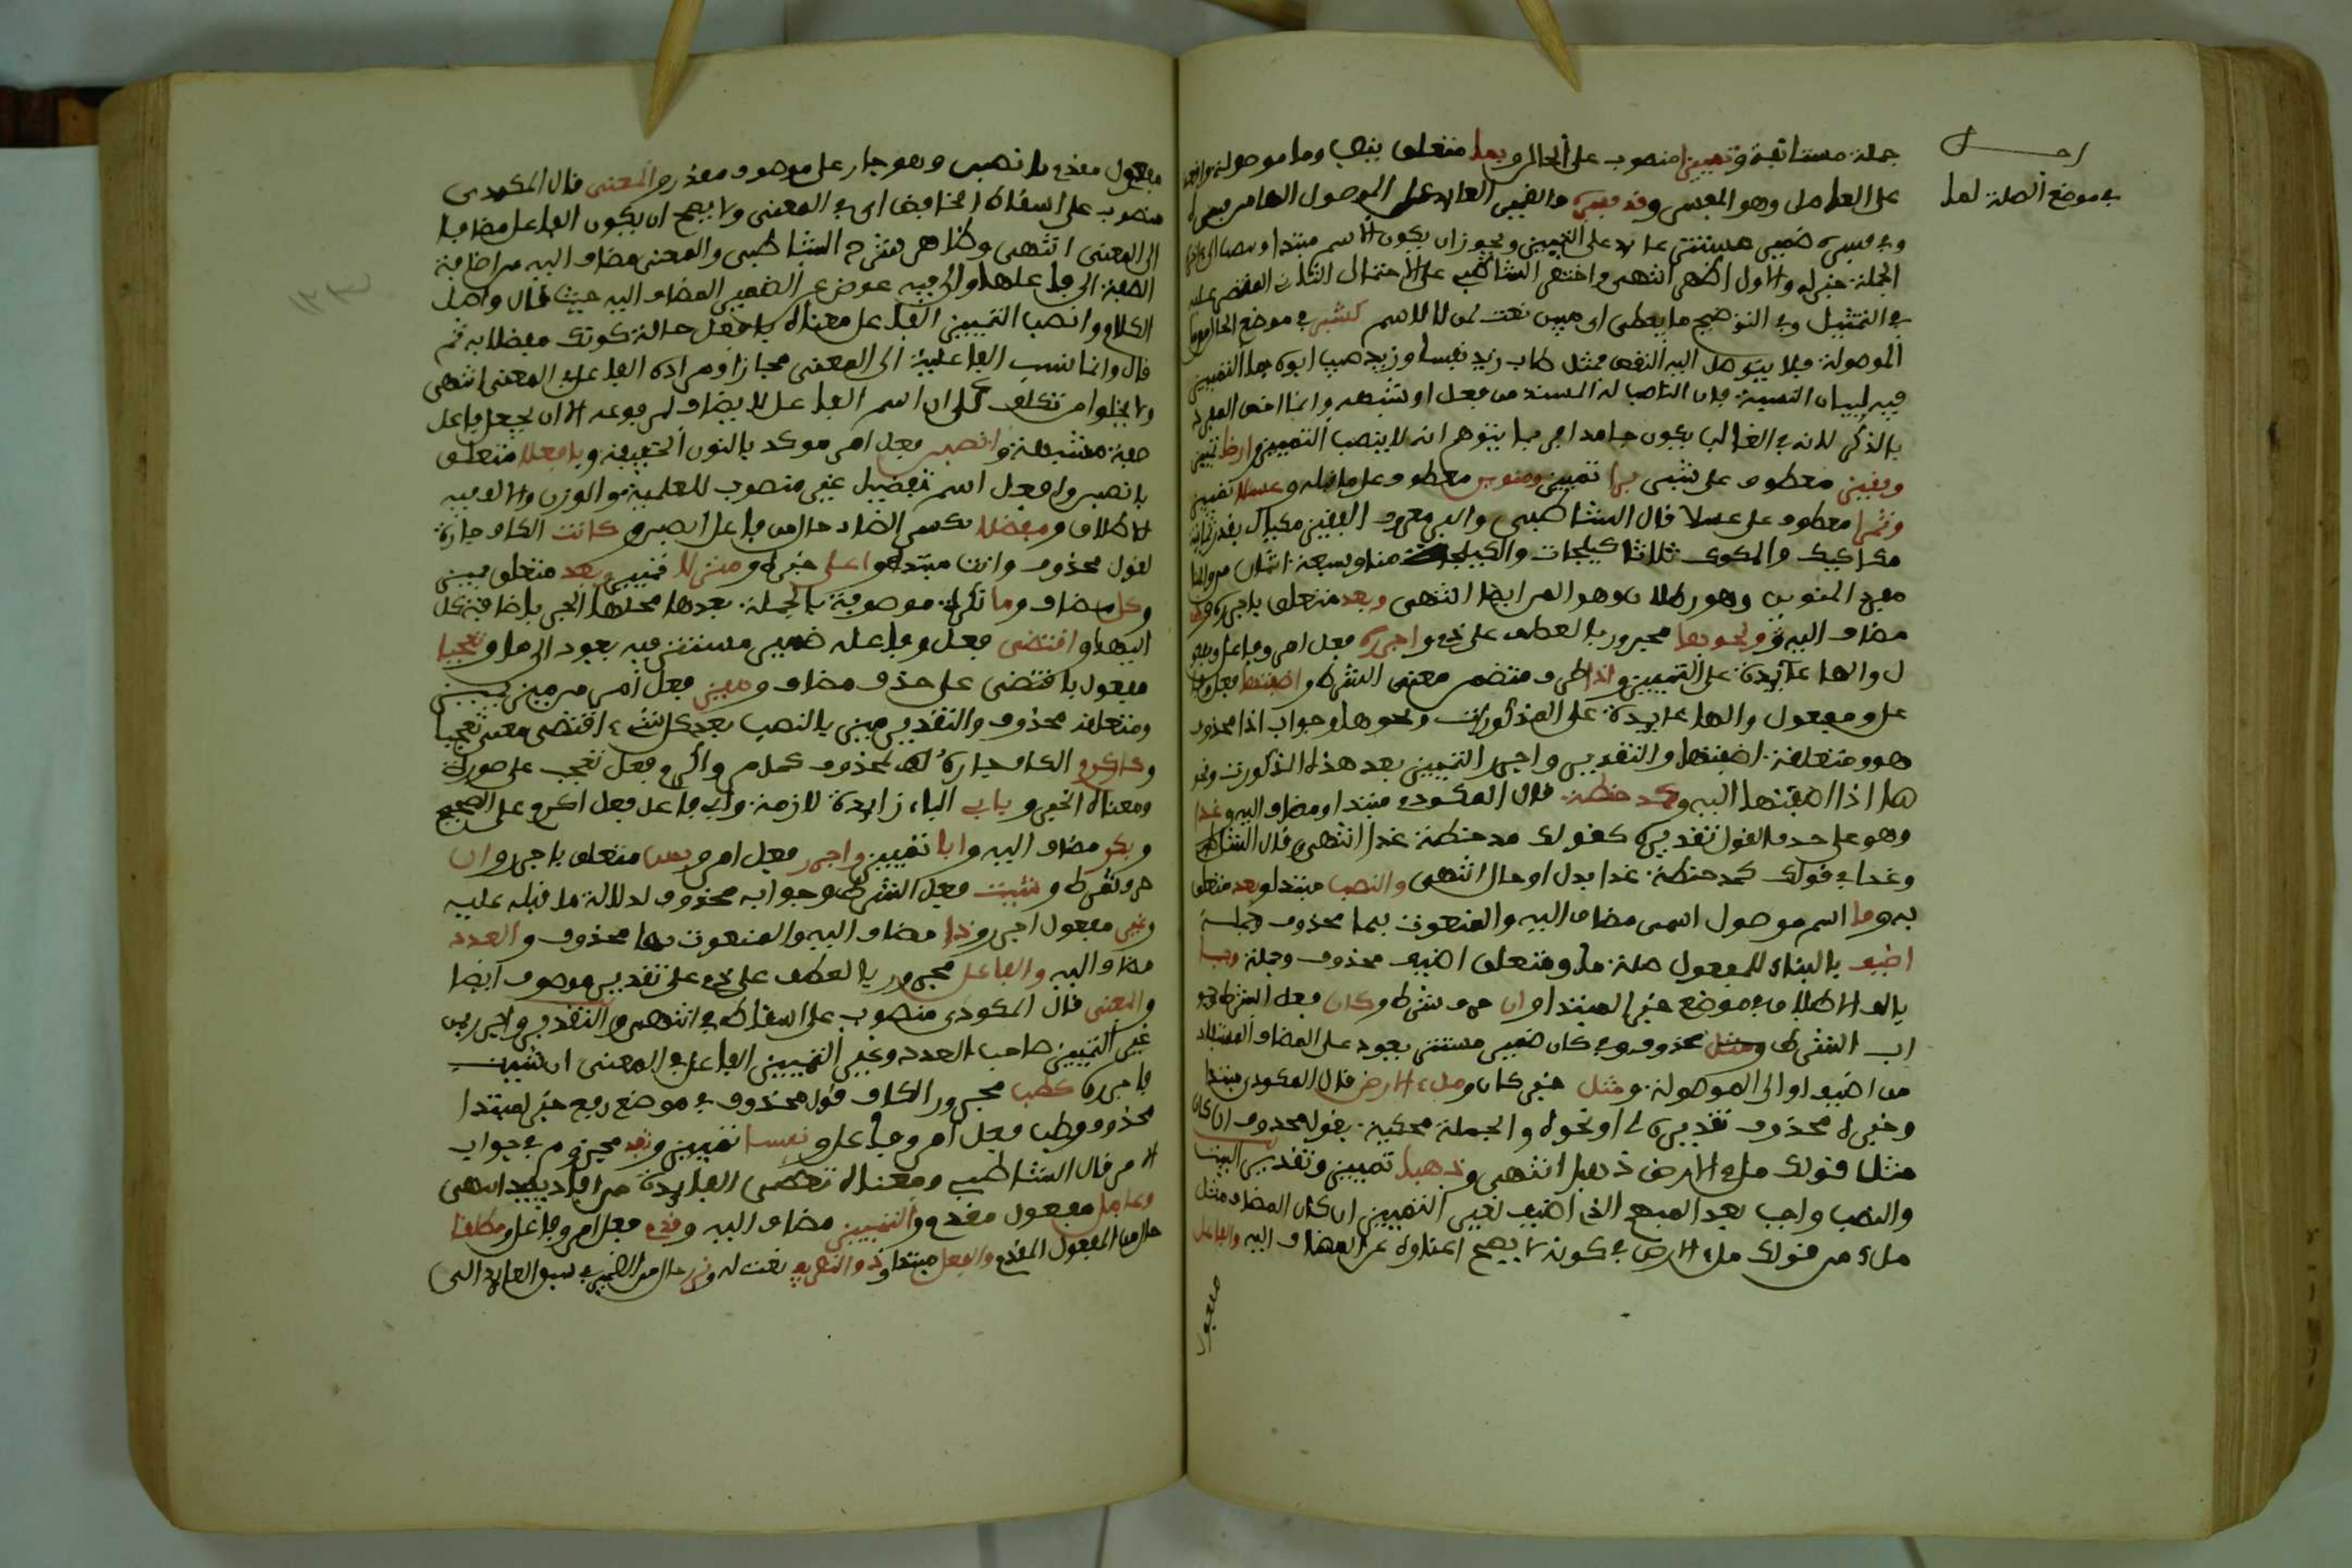 جملة مستانفة وتمييزا منصوب على الحال وبما متعلق بنصب وما موصولة
على العامل وهو المفسر وقد فسره والضمير العائد على الموصول الهاء من فسره
وفي فسره ضمير مستتر عائد على التمييز ويجوز ان يكون الاسم مبتدا
الجملة خبره والاول اظهر انتهى واختصر الشاطبي على الاحتمال الثاني
في التمثيل وفي التوضيح ما يعطى ان مبين نعت لمن لا للاسم كشبر في موضع الحال من ما
الموصولة فلا يتوصل اليه النفس مثل طاب زيد نفسا وزيد طيب ابوه
فيه لبيان النسبة فان الناصب له المسند من فعل او شبهه وانما خص المفرد
بالذكر لانه في الغالب يكون جامدا فربما يتوهم انه لا ينصب التمييز وارضا تمييز
وقفيز معطوف على شبر برا تمييز ومنوين معطوف على ما قبله وعسلا تمييز
وتمرا معطوف على عسلا قال الشاطبي والبر معروف القفيز مكيال
مكاكيك والمكوك ثلاث كيلجات والكيلجة منا وسبعة اثمان من والمنا
مفرد المنوين وهو رطلان وهو المن ايضا انتهى وبعد متعلق باجرره وذي
مضاف اليه ونحوها مجرور بالعطف على ذي واجرره فعل امر وفاعل
ل والهاء عائدة على التمييز واذا ظرف متضمن معنى الشرط واضفتها فعل
على ومفعول والهاء عائدة على المذكورات ونحوها وجواب اذا محذوف
هو ومتعلقة اضفتها والتقدير واجرر التمييز بعد هذه المذكورات ونحو
ها اذا اضفتها اليه وكمد حنطة قال المكودي مبتدا ومضاف اليه وغذا
وهو على حذف القول تقديره كقولك مد حنطة غذا انتهى وقال الشاطبي
وغذا في قولك كمد حنطة غذا بدل او حال انتهى والنصب مبتدا وبعد متعلق
به وما اسم موصول اسمي مضاف اليه والمنعوت بما محذوف وجملة
اضيف بالبناء للمفعول صلة ما ومتعلق اضيف محذوف وجملة وجبا
بالف الاطلاق في موضع خبر المبتدا وان حرف شرط وكان فعل الشرط
اب الشرط محذوف وفي كان ضمير مستتر يعود على المضاف المستفاد
من اضيف او الى الموصولة ومثل خبر كان وملء الارض قال المكودي مبتدا
وخبره محذوف تقديره لي او نحوه والجملة محكية بقول محذوف ان كان
مثل قولك ملء الارض ذهبا انتهى وذهبا تمييز وتقدير البيت
والنصب واجب بعد المبهم الذي اضيف لغير التمييز ان كان المضاف مثل
ملء من قولك ملء الارض في كونه لا يصح اغناؤه عن المضاف اليه والفاعل
مفعول
في موضع الصلة لما
مفعول مقدم بانصبن وهو جار على موصوف مقدر والمعنى قال المكودي
منصوب على اسقاط الخافض اي في المعنى ولا يصح ان يكون الفاعل مضافا
الى المعنى انتهى وظاهر شرح الشاطبي والمعنى مضاف اليه من اضافة
الصفة الى فاعلها وال فيه عوض عن الضمير المضاف اليه حيث قال واصل
الكلام وانصب التمييز الفاعل معناه بافعل حالة كونك مفضلا به ثم
قال وانما نسب الفاعلية الى المعنى مجازا ومراده الفاعل في المعنى انتهى
ولا يخلوا من تكلف على ان اسم الفاعل لا يضاف لمرفوعه الا ان يجعل فاعل
صفة مشبهة وانصبن فعل امر موكد بالنون الخفيفة وبافعلا متعلق
بانصبن وافعل اسم تفضيل غير منصرف للعلمية والوزن والالف فيه
للاطلاق ومفضلا بكسر الضاد حال من فاعل انصبن وكانت الكاف جارة
لقول محذوف وانت مبتدا واعلى خبره ومنزلا تمييز وبعد متعلق بميز
وكل مضاف وما نكرة موصوفة بالجملة بعدها محلها الجر باضافة كل
اليها واقتضى فعل وفاعله ضمير مستتر فيه يعود الى ما وتعجبا
مفعول باقتضى على حذف مضاف وميز فعل امر من ميز يميز
ومتعلقه محذوف والتقدير ميز بالنصب بعد كل شيء اقتضى معنى تعجبا
وكاكرم الكاف جارة لقول محذوف كما مر واكرم فعل تعجب على صورة
ومعناه الخبر وبابي الباء زايدة لازمة وابي فاعل فعل اكرم على الصحيح
وبكر مضاف اليه وابا تمييز واجرر فعل امر وبمن متعلق باجرر وان
حرف شرط وشئت فعل الشرط وجوابه محذوف لدلالة ما قبله عليه
وغير مفعول اجرر وذي مضاف اليه والمنعوت بها محذوف والعدد
مضاف اليه والفاعل مجرور بالعطف على ذي على تقدير موصوف ايضا
والمعنى قال المكودي منصوب على اسقاط في انتهى والتقدير واجرر بمن
غير التمييز صاحب العدد وغير التمييز الفاعل في المعنى ان شئت
فاجرره كطب مجرور الكاف قول محذوف في موضع رفع خبر لمبتدا
محذوف وطب فعل امر وفاعل ونفسا تمييز وتفد مجزوم في جواب
الامر قال الشاطبي ومعناه تعطى الفايدة من افاد يفيد انتهى
وعامل مفعول مقدم والتمييز مضاف اليه وقدم فعل امر وفاعل ومطلقا
حال من المفعول المقدم والفعل مبتدا وذو التصريف نعت له ونزرا حال من الضمير في سبق العايد الى